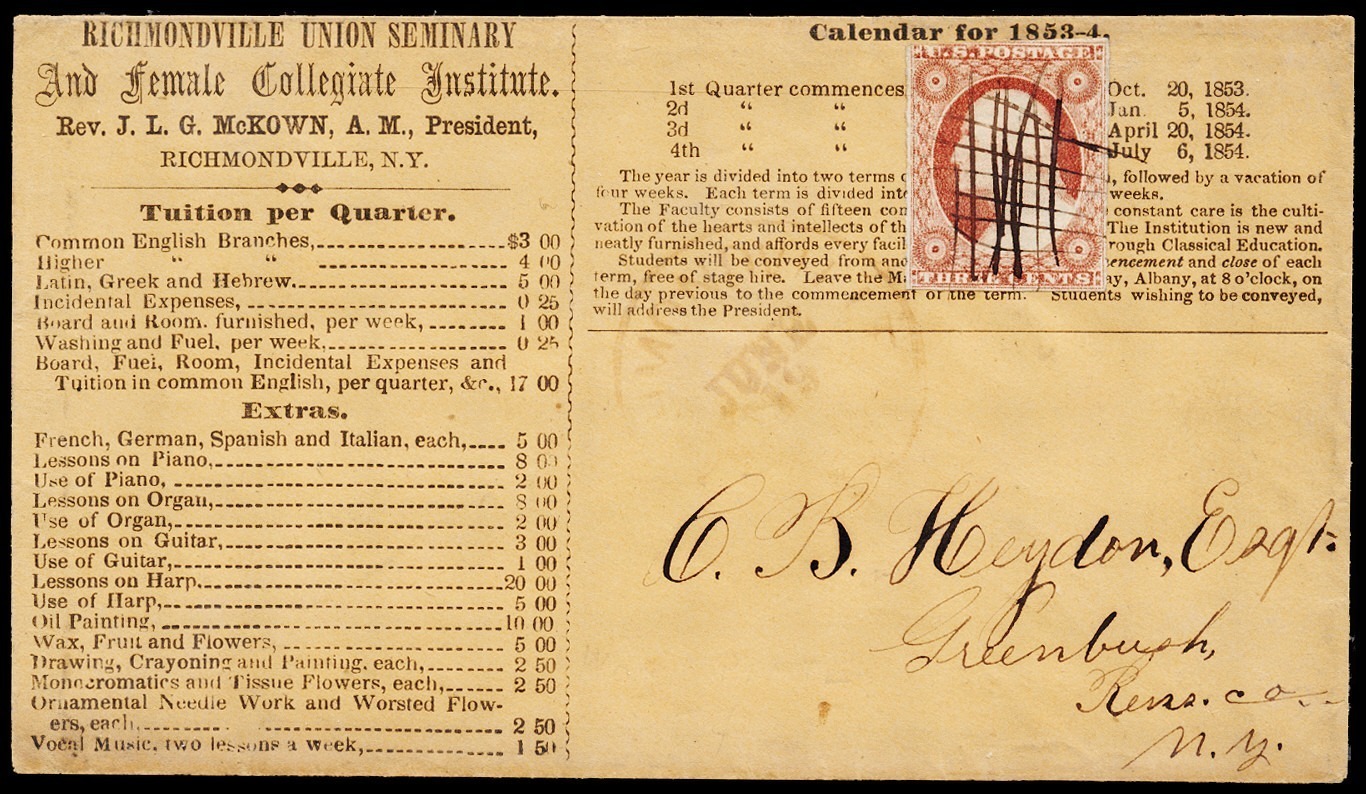 RICHMONDVILLE UNION SEMINARY
And Female Collegiate Institute.
Rev. J. L. G. McKOWN, A. M., President,
RICHMONDVILLE, N.Y.
Tuition per Quarter.
Common English Branches, $3 00
Higher “ “ 4 00
Latin, Greek and Hebrew. 5 00
Incidental Expenses, 0 25
Board and Room. furnished, per week, 1 00
Washing and Fuel, per week, 0 25
Board, Fuel, Room, Incidental Expenses and
Tuition in common English, per quarter, &c., 17 00
Extras.
French, German, Spanish and Italian, each, 5 00
Lessons on Piano, 8 00
Use of Piano, 2 00
Lessons on Organ, 8 00
Use of Organ, 2 00
Lessons on Guitar, 3 00
Use of Guitar, 1 00
Lessons on Harp, 20 00
Use of Harp, 5 00
Oil Painting, 10 00
Wax, Fruit and Flowers, 5 00
Drawing, Crayoning and Painting, each, 2 50
Monocromatics and Tissue Flowers, each, 2 50
Ornamental Needle Work and Worsted Flow-
ers, each, 2 50
Vocal Music, two lessons a week, 1 50
Calendar for 1853-4.
1st Quarter commences Oct. 20, 1853.
2d “ “ Jan. 5, 1854.
3d “ “ April 20, 1854.
4th “ “ July 6, 1854.
The year is divided into two terms , followed by a vacation of
four weeks. Each term is divided weeks.
The Faculty consists of fifteen constant care is the culti-
vation of the hearts and intellects of The Institution is new and
neatly furnished, and affords every Classical Education.
Students will be conveyed from and close of each
term, free of stage hire. Leave the Albany, at 8 o'clock, on
the day previous to the commencement of the term. Students wishing to be conveyed,
will address the President.
U.S. POSTAGE
THREE CENTS
C. B. Heydon, Esqr.
Greenbush,
Rens. co.
N. Y.